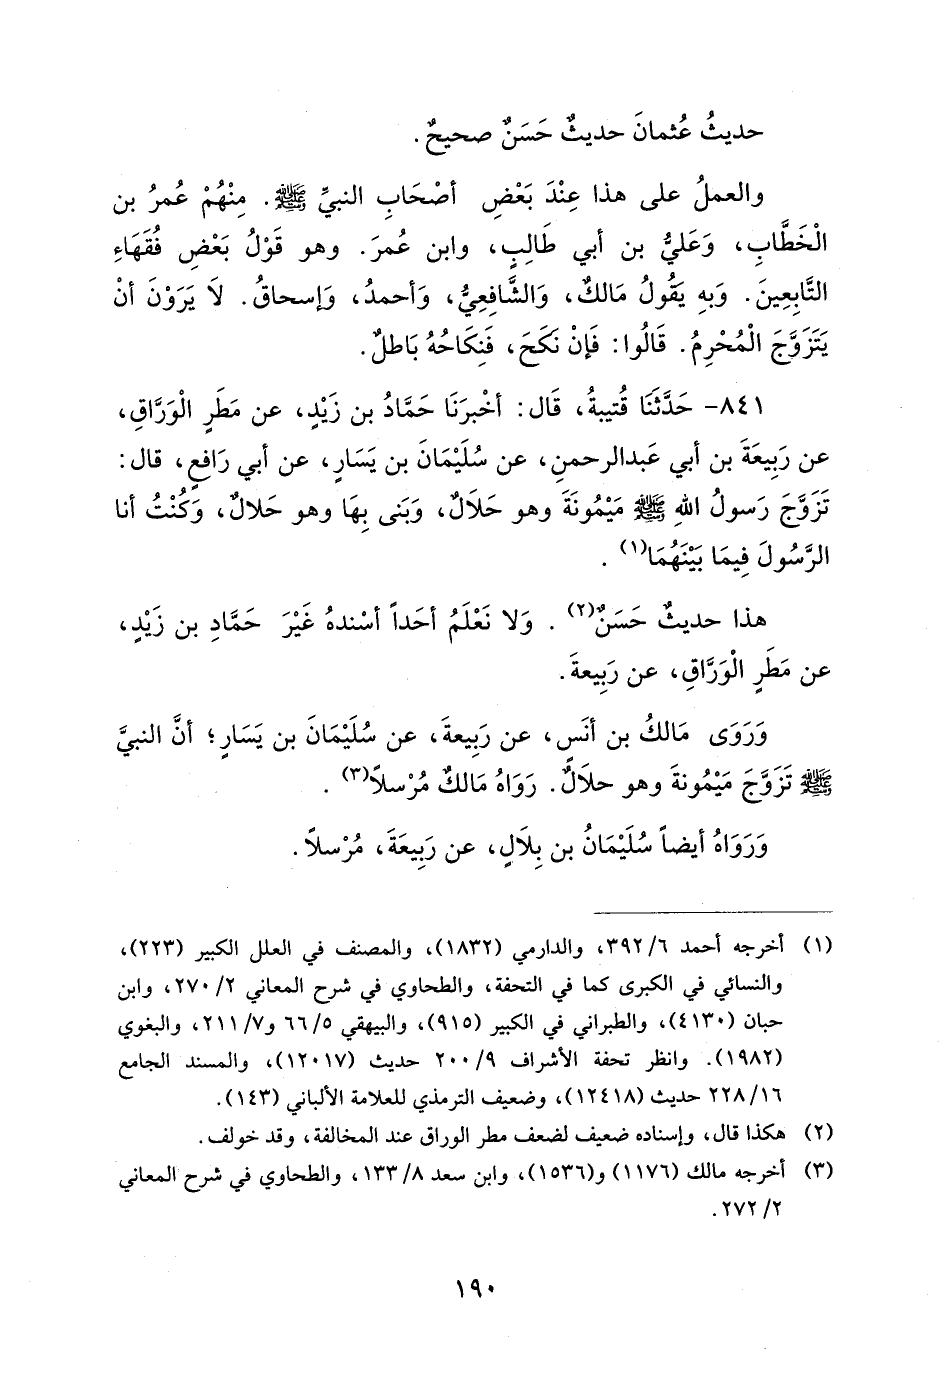 حديثُ عُثمانَ حديثٌ حَسَنٌ صحيحٌ.
والعملُ على هذا عِنْدَ بَعْضِ أصْحَابِ النبيِّ ﷺ. مِنْهُمْ عُمرُ بن
الْخَطَّابِ، وَعَليُّ بن أبي طَالِبٍ، وابن عُمرَ. وهو قَوْلُ بَعْضِ فُقَهَاءِ
التَّابِعِينَ. وَبِهِ يَقُولُ مَالكٌ، وَالشَّافِعِيُّ، وَأحمدُ، وَإسحاقُ. لَا يَرَوْنَ أنْ
يَتَزَوَّجَ الْمُحْرِمُ. قَالُوا: فَإنْ نَكَحَ، فَنِكَاحُهُ بَاطلٌ.
٨٤١- حَدَّثَنَا قُتيبةُ، قَال: أخْبرَنَا حَمَّادُ بن زَيْدٍ، عن مَطَرٍ الْوَرَّاقِ،
عن رَبِيعَةَ بن أبي عَبدالرحمنِ، عن سُلَيْمَانَ بن يَسَارٍ، عن أبي رَافعٍ، قال:
تَزَوَّجَ رَسولُ اللهِ ﷺ مَيْمُونَةَ وهو حَلَالٌ، وَبَنى بِهَا وهو حَلالٌ، وَكُنْتُ أنا
الرَّسُولَ فِيمَا بَيْنَهُمَا(١) .
هذا حديثٌ حَسَنٌ(٢) . وَلا نَعْلَمُ أحَداً أسْندهُ غَيْرَ حَمَّادِ بن زَيْدٍ،
عن مَطَرٍ الْوَرَّاقِ، عن رَبِيعةَ.
وَرَوَى مَالكُ بن أنَسٍ، عن رَبِيعةَ، عن سُلَيْمَانَ بن يَسَارٍ؛ أنَّ النبيَّ
ﷺ تَزَوَّجَ مَيْمُونةَ وهو حلالٌ. رَوَاهُ مَالكٌ مُرْسلاً(٣) .
وَرَوَاهُ أيضاً سُلَيْمَانُ بن بِلَالٍ، عن رَبِيعَةَ، مُرْسلاً.
(١) أخرجه أحمد ٦/ ٣٩٢، والدارمي (١٨٣٢)، والمصنف في العلل الكبير (٢٢٣)،
والنسائي في الكبرى كما في التحفة، والطحاوي في شرح المعاني ٢/ ٢٧٠، وابن
حبان (٤١٣٠)، والطبراني في الكبير (٩١٥)، والبيهقي ٥/ ٦٦ و٧/ ٢١١، والبغوي
(١٩٨٢). وانظر تحفة الأشراف ٩/ ٢٠٠ حديث (١٢٠١٧)، والمسند الجامع
١٦/ ٢٢٨ حديث (١٢٤١٨)، وضعيف الترمذي للعلامة الألباني (١٤٣).
(٢) هكذا قال، وإسناده ضعيف لضعف مطر الوراق عند المخالفة، وقد خولف.
(٣) أخرجه مالك (١١٧٦) و(١٥٣٦)، وابن سعد ٨/ ١٣٣، والطحاوي في شرح المعاني
٢/ ٢٧٢.
١٩٠